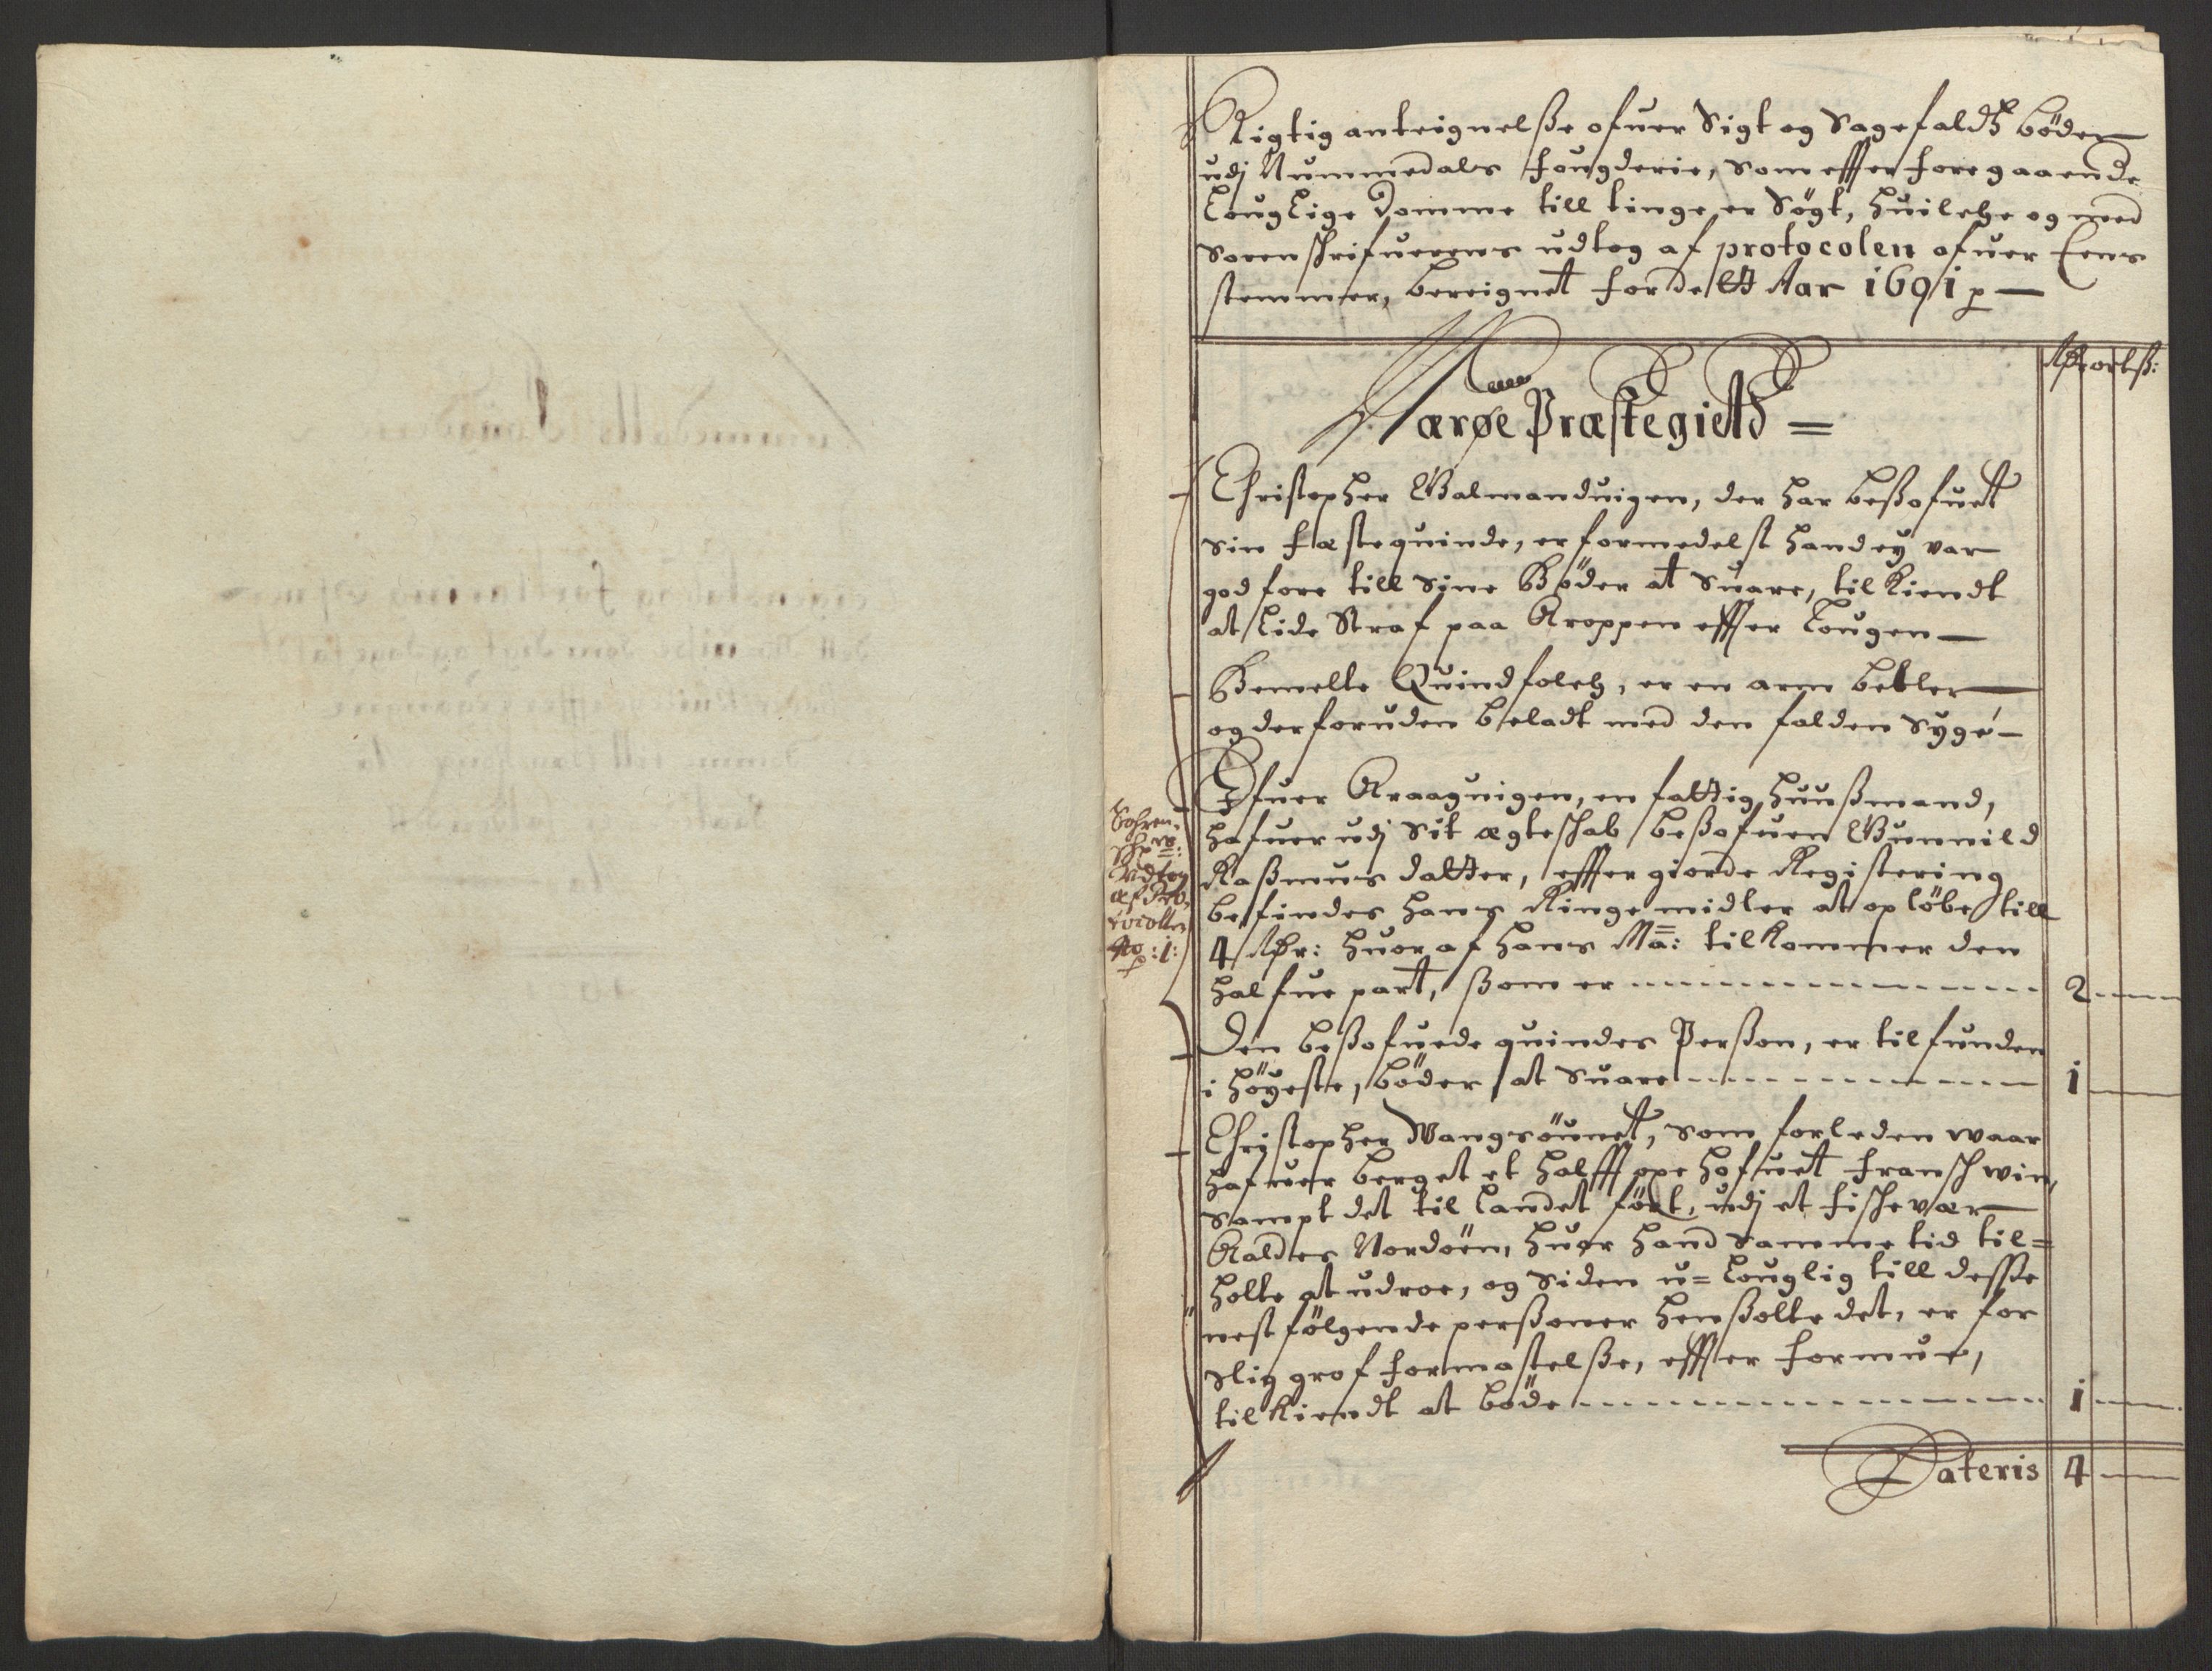 Rigtig anteignelsse ofuer Sigt og Sagefaldz bøder
udj Nummedals fougderie, som effter foregaaende
Louglige Domme till tinge er Søgt, huilche og med
Sorenschrifuerens udtog af protocolen ofuer Eens
stemmer, bereignet for dett Aar 1691 p
Rdr ort ß:
Nærøe Præstegield =
Christopher Walmanduigen, der har besofuet
sin fæstequinde, er formedelst hand ey var
god fore till sine Bøder at suare, tilkiendt
at lide Straf paa Kroppen effter Lougen
Bemelte Quindfolch, er en arm betler
og der foruden beladt med den falden syge
Efuer Kraaguigen, en fattig huussmand,
hafuer udj Sit ægteschab besofuen Gunnild
Rassmus datter, effter giorde Registering
befindes hans Ringe midler at opløbe till
4 Rdr: huoraf hans Ma: tilkommer den
halfue part, ssom er 2
Sohren-
schrs:
Udtog
af Pro-
tocollen
No: 1:
Den besofuede quindes Persson, er tilfunden
i høyeste, bøder at suare 1
Christopher Wangsøunet, som forleden waar
hafuer berget et halff oxe hofuet fransch win,
sampt det til landet ført, udj et fischevær
Kaldes Nordøen, huor hand samme tid til=
holte at udroe, og siden u=louglig till desse
nest følgende perssoner henssolte det, er for
slig grof formastelsse, effter formue,
tilkiendt at bøde 1
Lateris 4